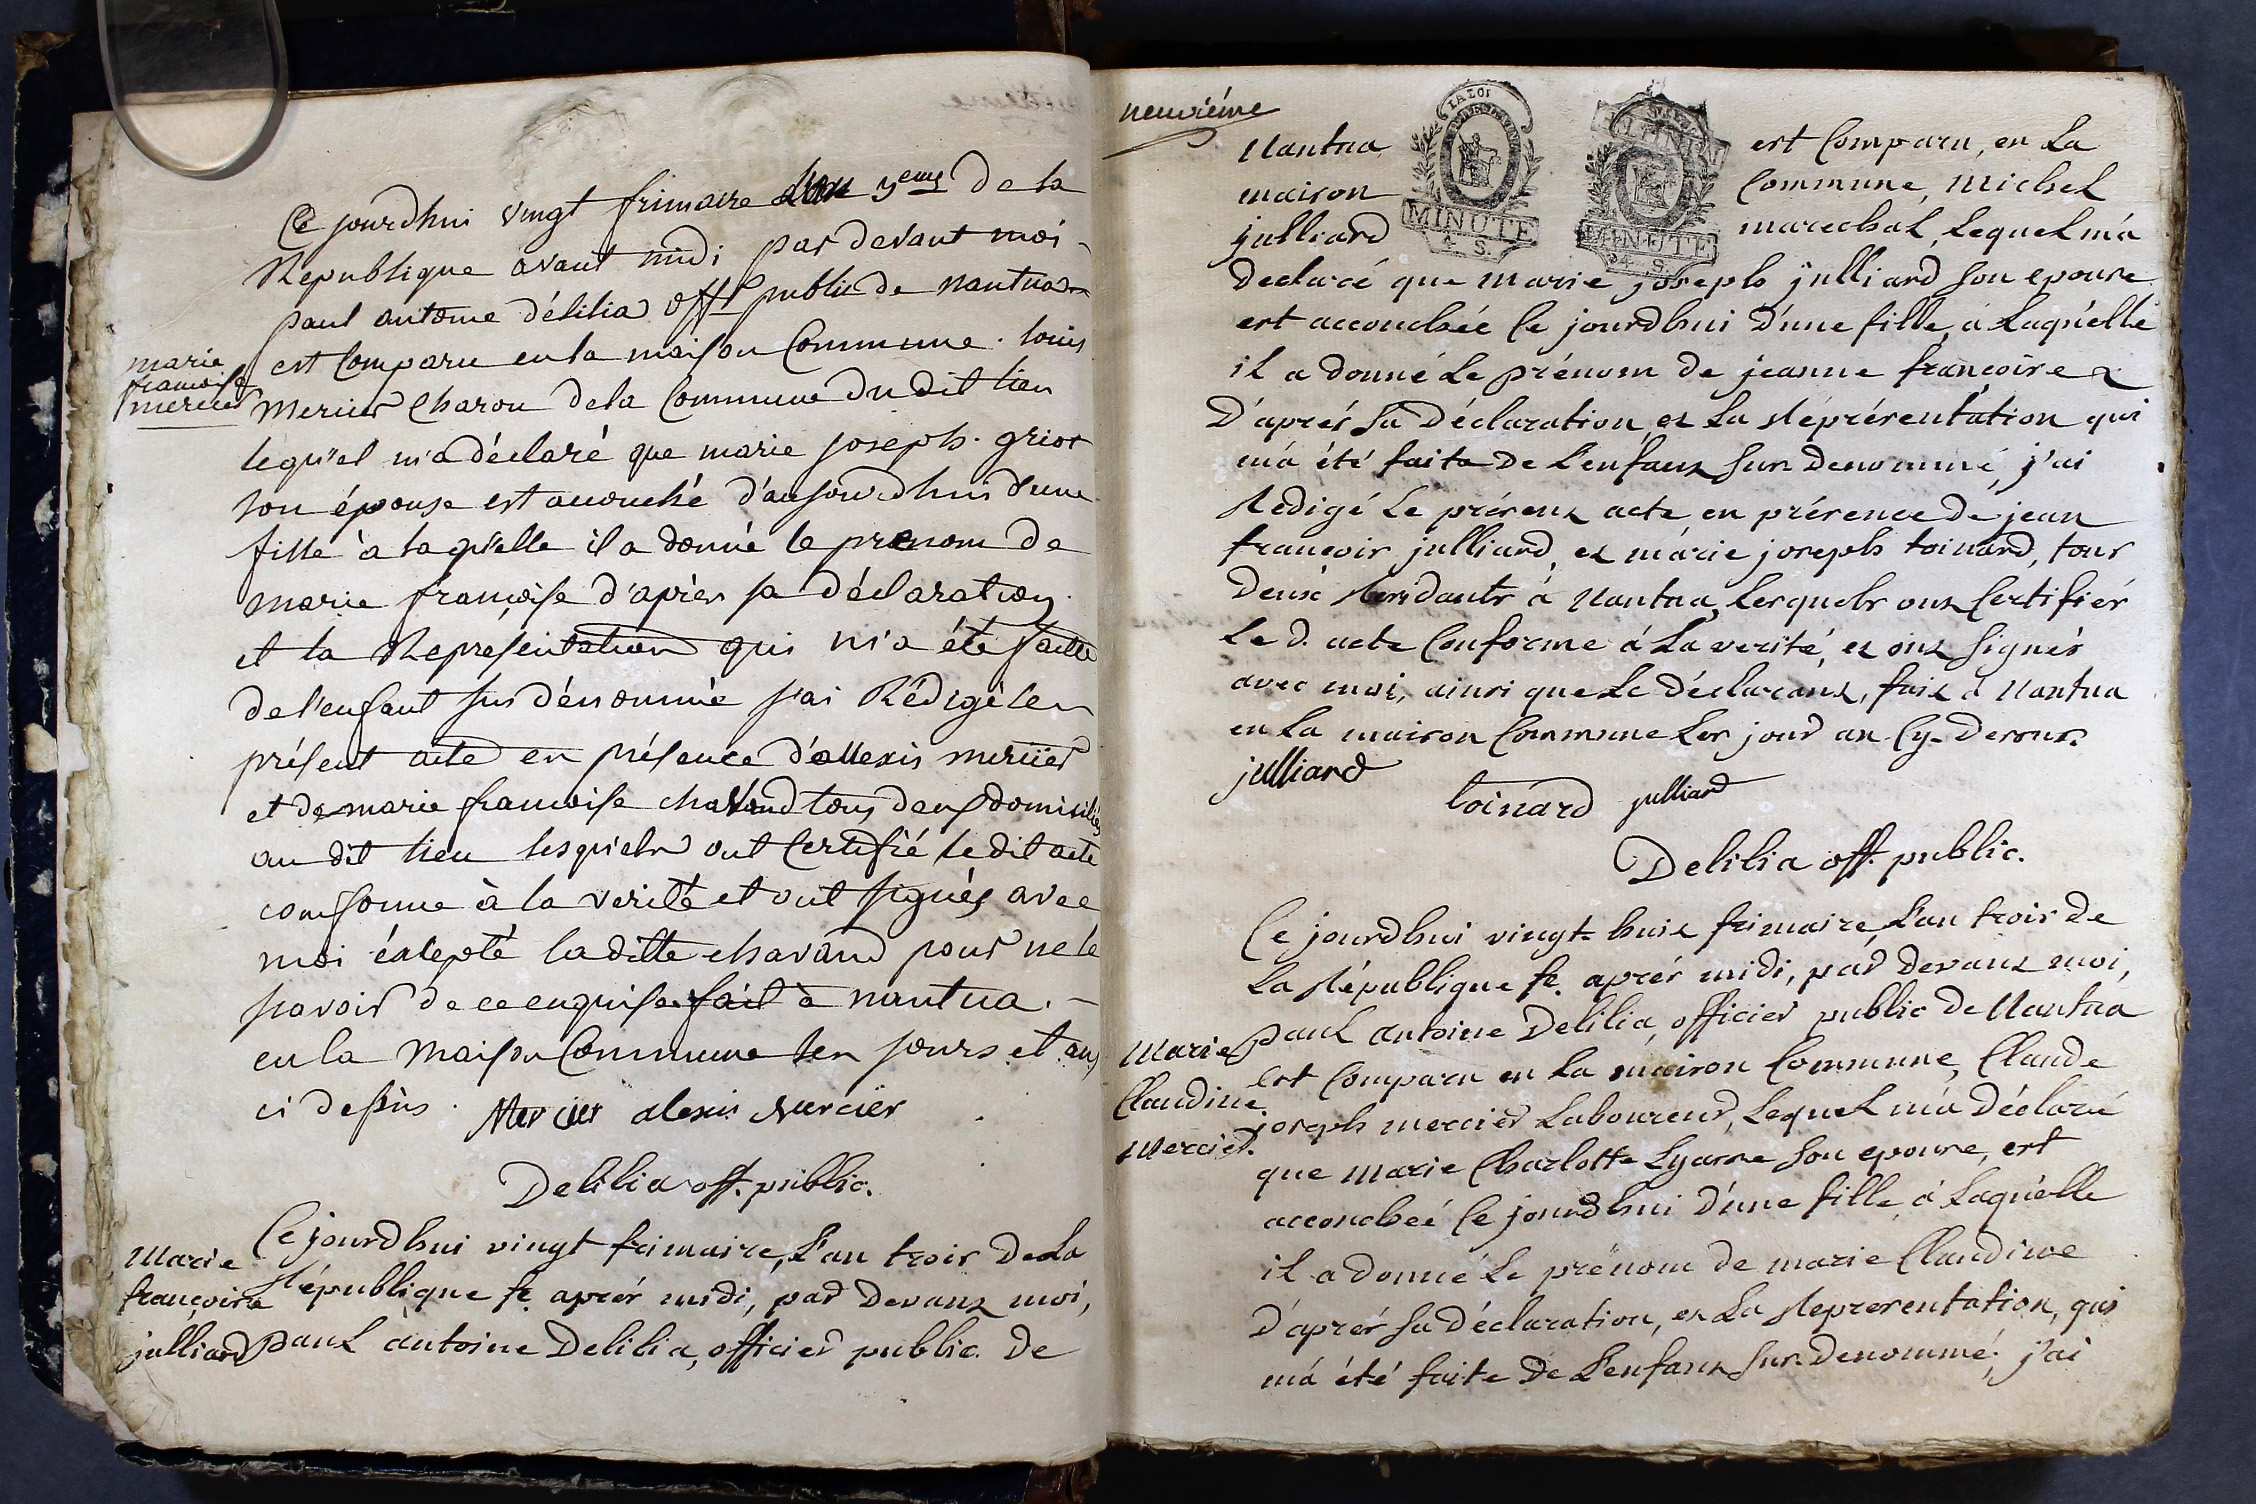 Ce jourdhui vingt frimaire lan 3eme de la
Republique avant midi par devant moi
paul antoine délilia off. public de nantua
est Comparu en la maison Commune. louis
marie
francoise
mercier
Mercier Charon de la Commune du dit lieu
lequ'el m'a déclaré que marie joseph. griot
son épouse est accouché d'aujourdhui d'une
fille à laqu'elle il a donné le prenom de
marie françoise d'apres sa déclaration
et la Representation qui m'a été faitte
de l'enfant sus dénommée j'ai Rédigé le
présent acte en présence d'allexis mercier
et de marie francoise chavand tous deux domiciliés
au dit lieu lesqu'els ont Certifié le dit acte
conforme à la verité et ont signés avec
moi éxcepté laditte chavand pour ne le
savoir de ce enquise fait à nantua.
en la Maison Commune les jours et an
ci dessus. Mercier alexis Mercier
Delilia off. public.
Marie
françoise
julliard
Ce jourdhui vingt frimaire, l'an trois De la
République fe. après midi, par Devant moi,
paul antoine Delilia, officier public de
neuviéme
LA LOI
MINUTE
4. S.
MINUTE
4. S.
Nantua est Comparu, en La
maison Commune, Michel
julliard marechal, Lequel m'a
Declaré que marie joseph julliard son epouse
est accouchée Ce jourdhui D'une fille, à Laqu'elle
il a donné Le prénom De jeanne françoise
D'après Sa Déclaration et La Réprésentation qui
m'a été faite De L'enfant Sus Denommé, j'ai
Rédigé Le présent acte en présence De jean
françois julliard, et marie joseph toinard, tous
Deux Residants à Nantua, Lesquels ont Certifiés
Le d. acte Conforme à La verité, et ont Signés
avec moi, ainsi que Le Déclarant, fait à Nantua
en La maison Commune Les jour an Cy-Dessus.
julliard toinard julliard
Delilia off. public.
Ce jourdhui vingt-huit frimaire, L'an trois De
La République fe. après midi, par Devant moi,
Marie
Claudine
Mercier.
paul antoine Delilia, officier public De Nantua
est Comparu en La maison Commune, Claude
joseph mercier Laboureur, Lequel m'a Déclaré
que Marie Charlotte Lyasse Son epouse, est
accouchée Ce jourdhui D'une fille, à Laqu'elle
il a donné Le prénom De marie Claudine
D'après Sa Déclaration, et La Representation, qui
m'a été faite De L'enfant Sus Denommé, j'ai